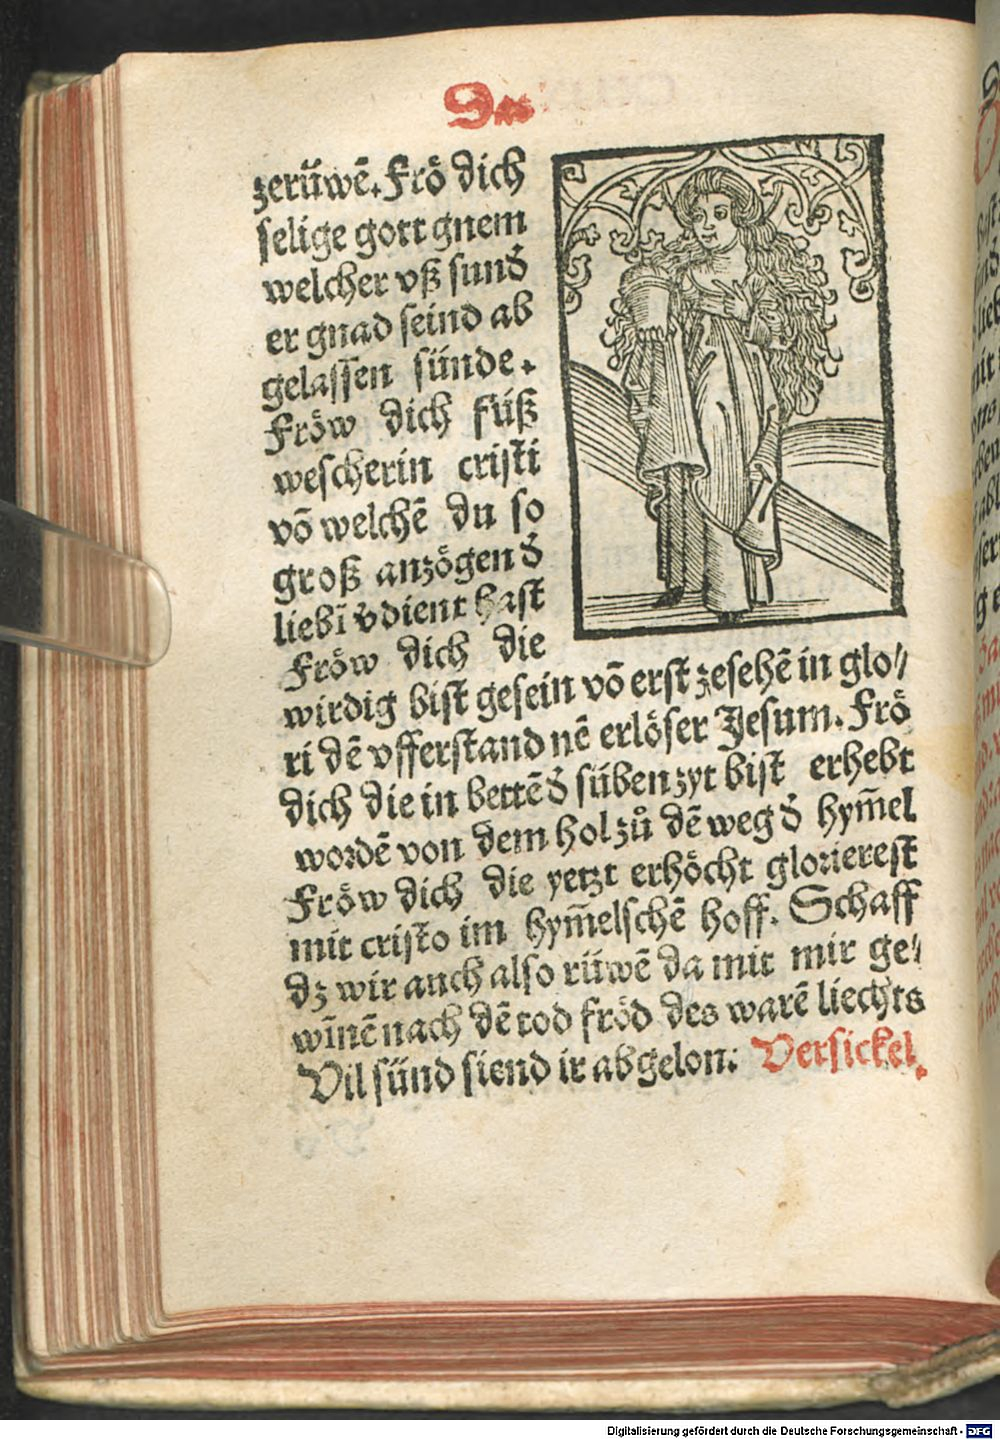 Das
zerüwē. Frö dich
selige gott gnem
welcher vß sund
er gnad seind ab
gelassen sünde.
Fröw dich füß
wescherin cristi
vō welchē du so
groß anzögend
liebī vdient hast
Fröw dich die
wirdig bist gesein vō erst zesehē in glo//
ri dē vfferstand nē erlöser Jesum. Frö
dich die in bettē d süben zyt bist erhebt
wordē von dem hol zů dē weg d hym̄el
Fröw dich die yetzt erhöcht glorierest
mit cristo im hym̄elschē hoff. Schaff
dz wir auch also rüwē da mit mir ge//
wīnē nach dē tod fröd des warē liechts
Vil sünd siend ir abgelon: Versickel.
Digitalisierung gefördert durch die Deutsche Forschungsgemeinschaft - DFG